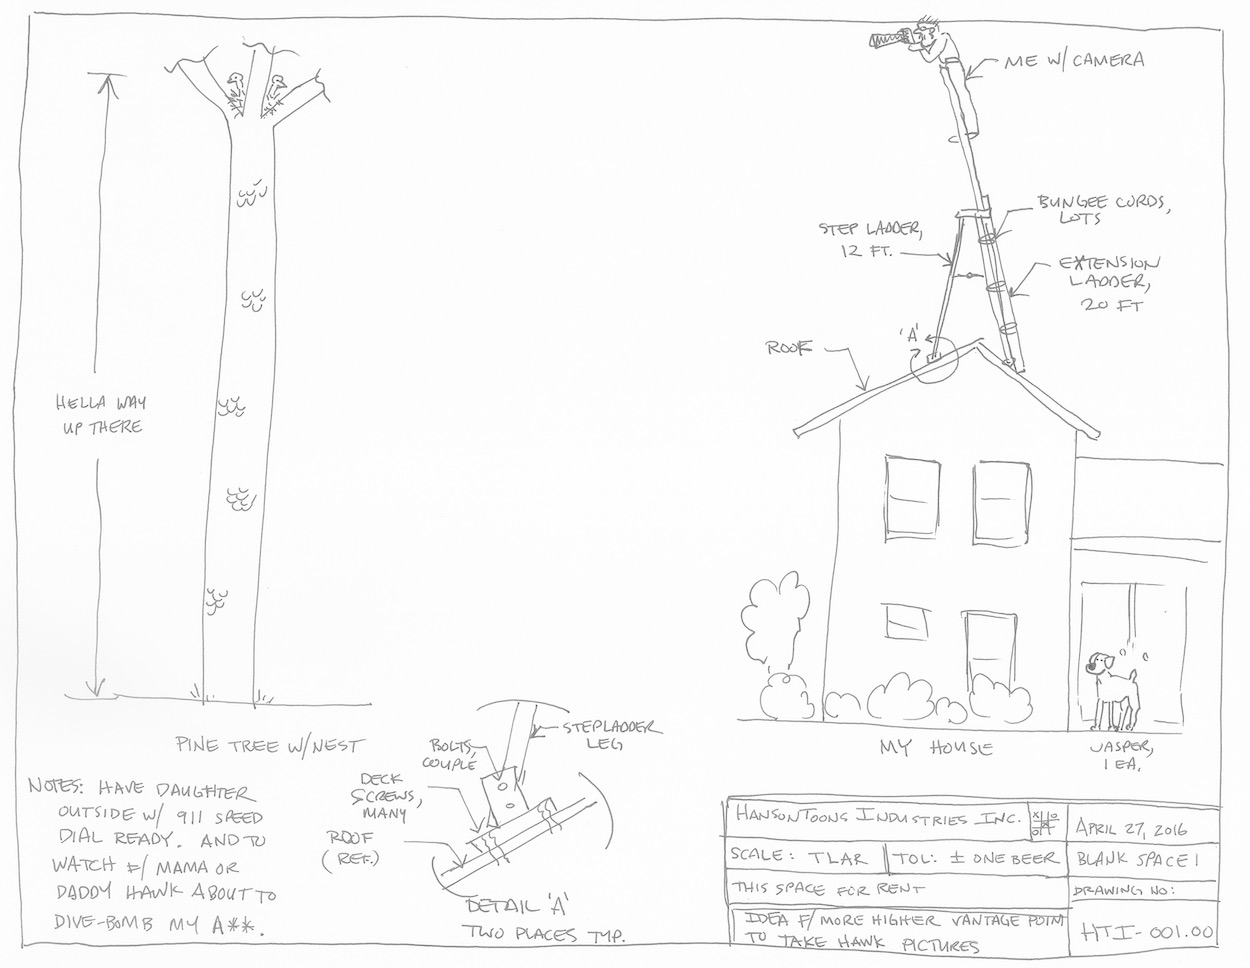 ME W/ CAMERA
BUNGEE CORDS,
LOTS
STEP LADDER,
12 FT.
EXTENSION
LADDER,
20 FT
'A'
ROOF
HELLA WAY
UP THERE
PINE TREE W/NEST
MY HOUSE
JASPER,
1 EA.
STEPLADDER
LEG
BOLTS,
COUPLE
DECK
SCREWS,
MANY
ROOF
(REF.)
DETAIL 'A'
TWO PLACES TYP.
NOTES: HAVE DAUGHTER
OUTSIDE W/ 911 SPEED
DIAL READY. AND TO
WATCH F/ MAMA OR
DADDY HAWK ABOUT TO
DIVE-BOMB MY A**.
HANSONTOONS INDUSTRIES INC.
APRIL 27, 2016
SCALE: TLAR
TOL: ± ONE BEER
BLANK SPACE 1
THIS SPACE FOR RENT
DRAWING NO:
IDEA F/ MORE HIGHER VANTAGE POINT
TO TAKE HAWK PICTURES
HTI-001.00